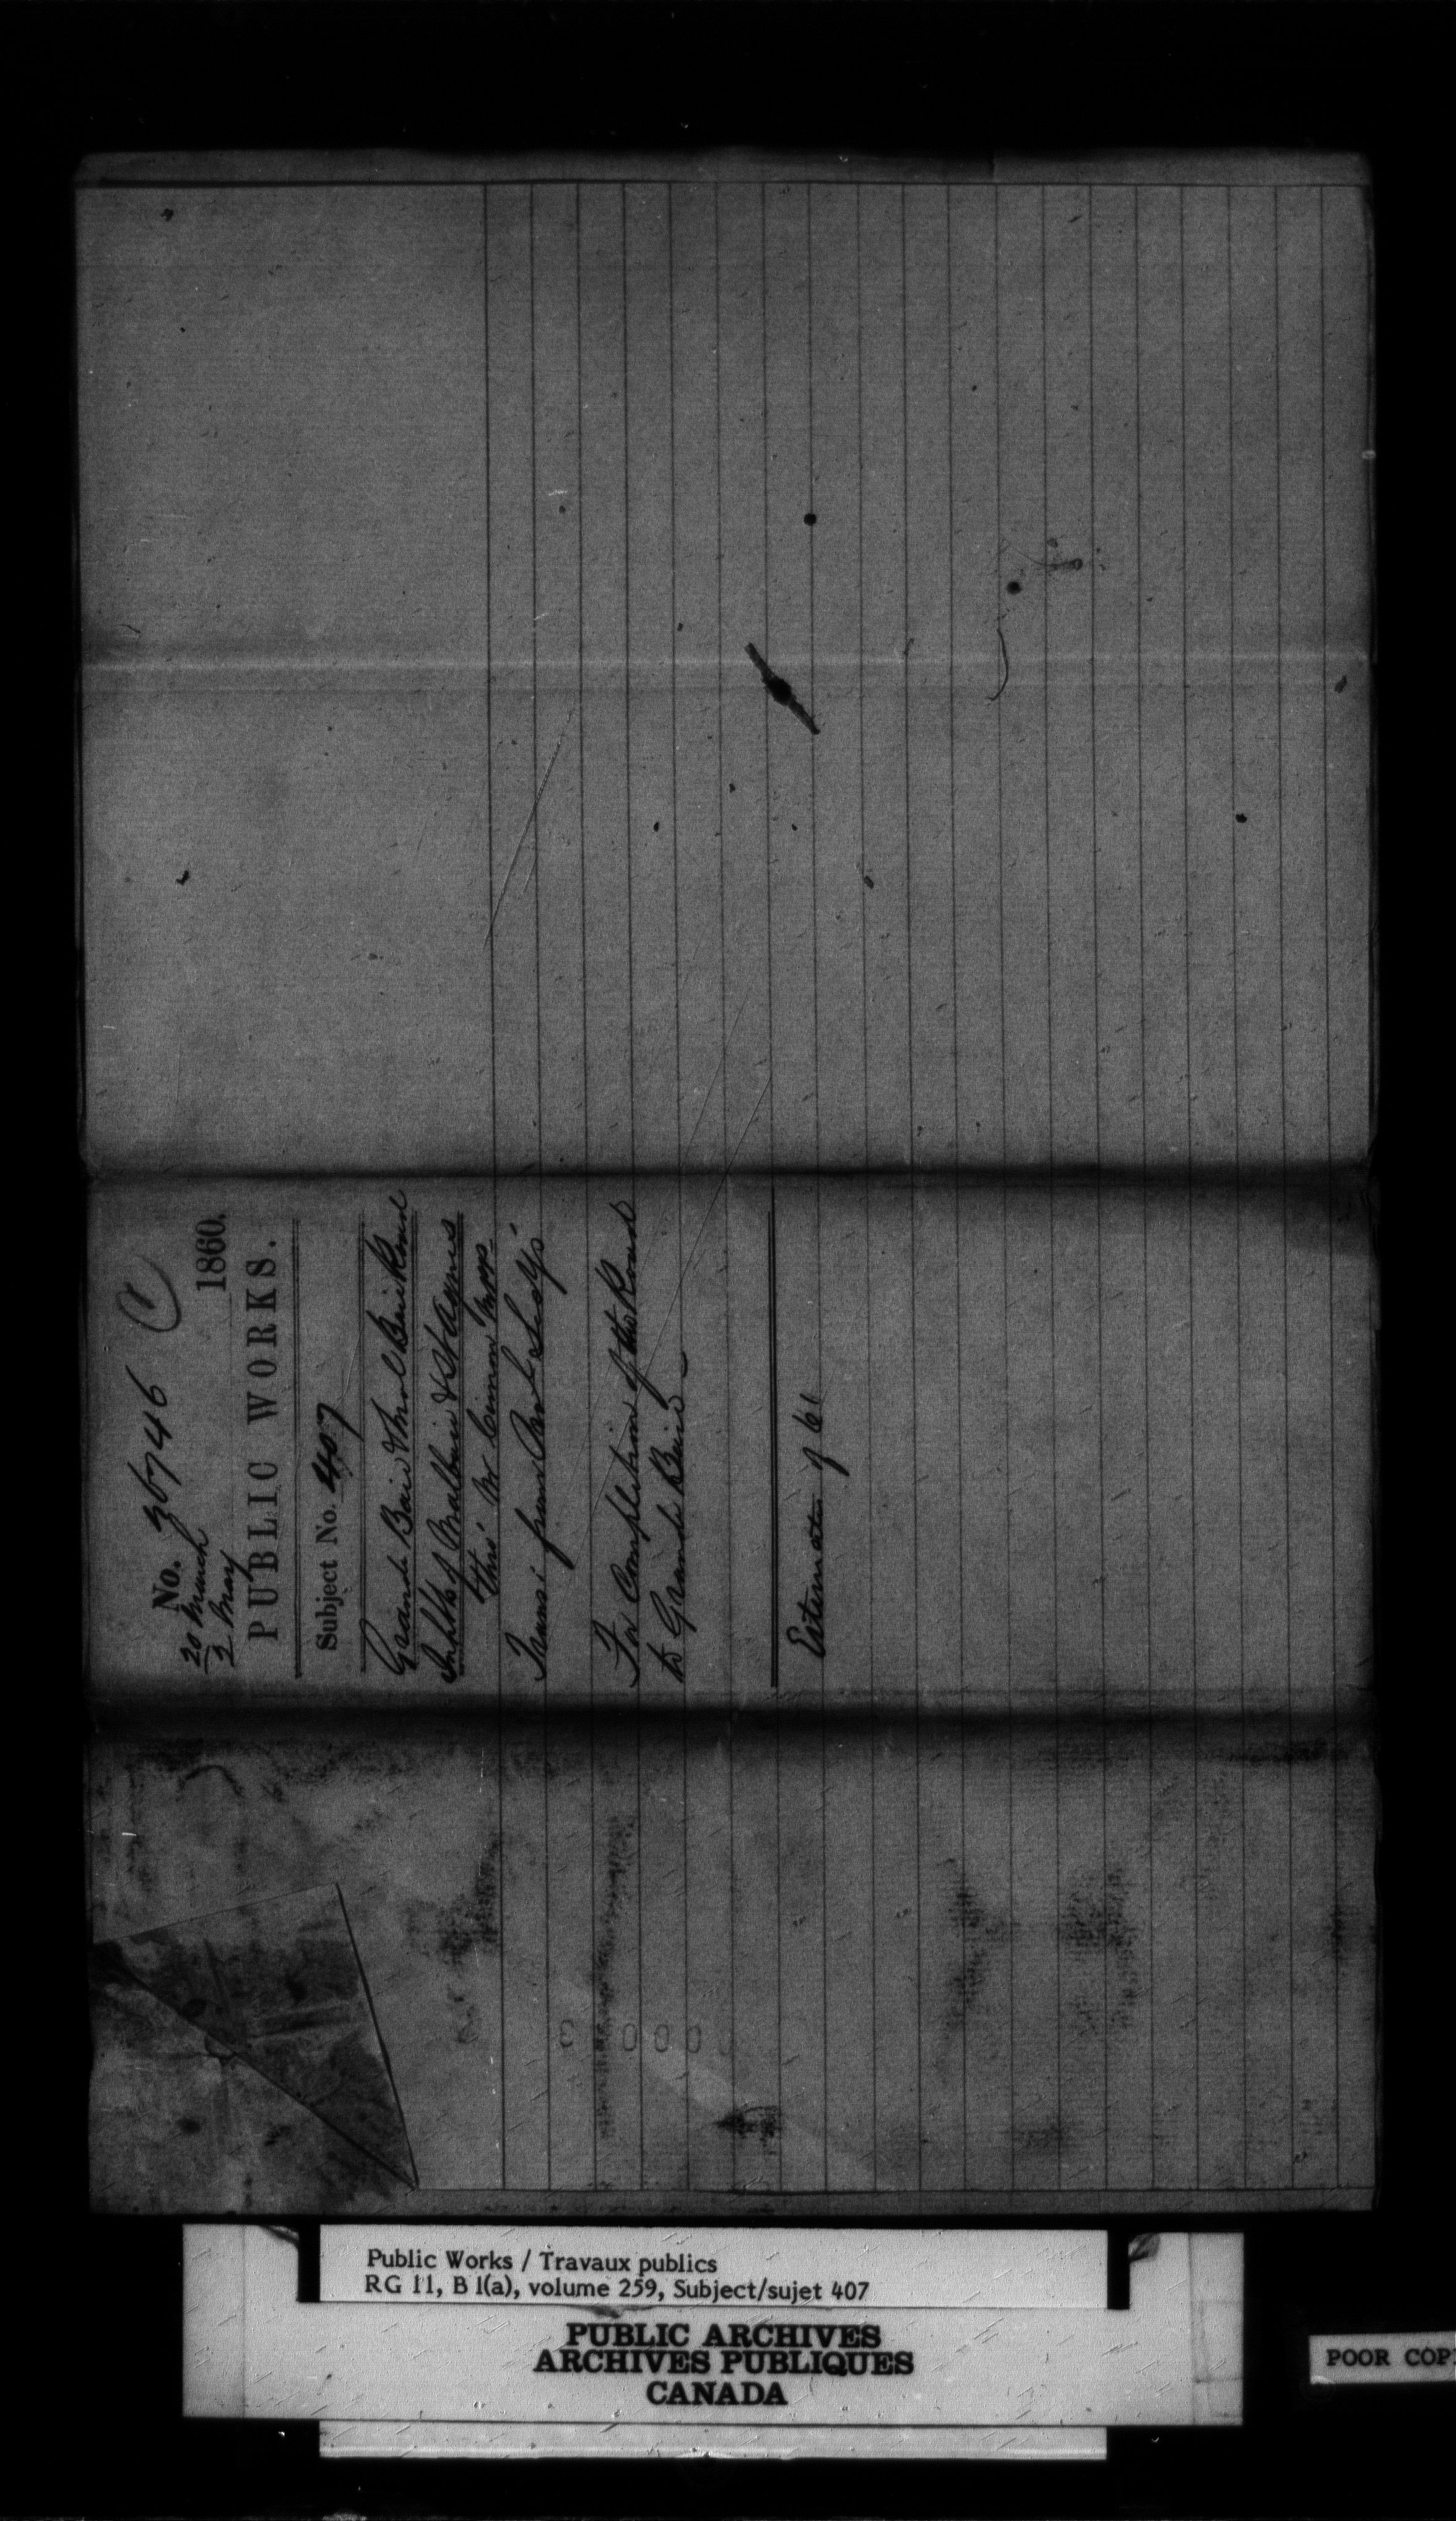 No. 36746
20 March
2 May 1860.
PUBLIC WORKS.
Subject No. 407
Grande Baie & Mal Baie Road
Inhbts of Malbaie & St Agnes
thro' Mr Cimon M.P.P.
Trans: from
For Completion of the Road
to Grande Baie
Estimates of 61
Public Works / Travaux publics
RG 11, B 1(a), volume 259, Subject/sujet 407
PUBLIC ARCHIVES
ARCHIVES PUBLIQUES
CANADA
POOR COP